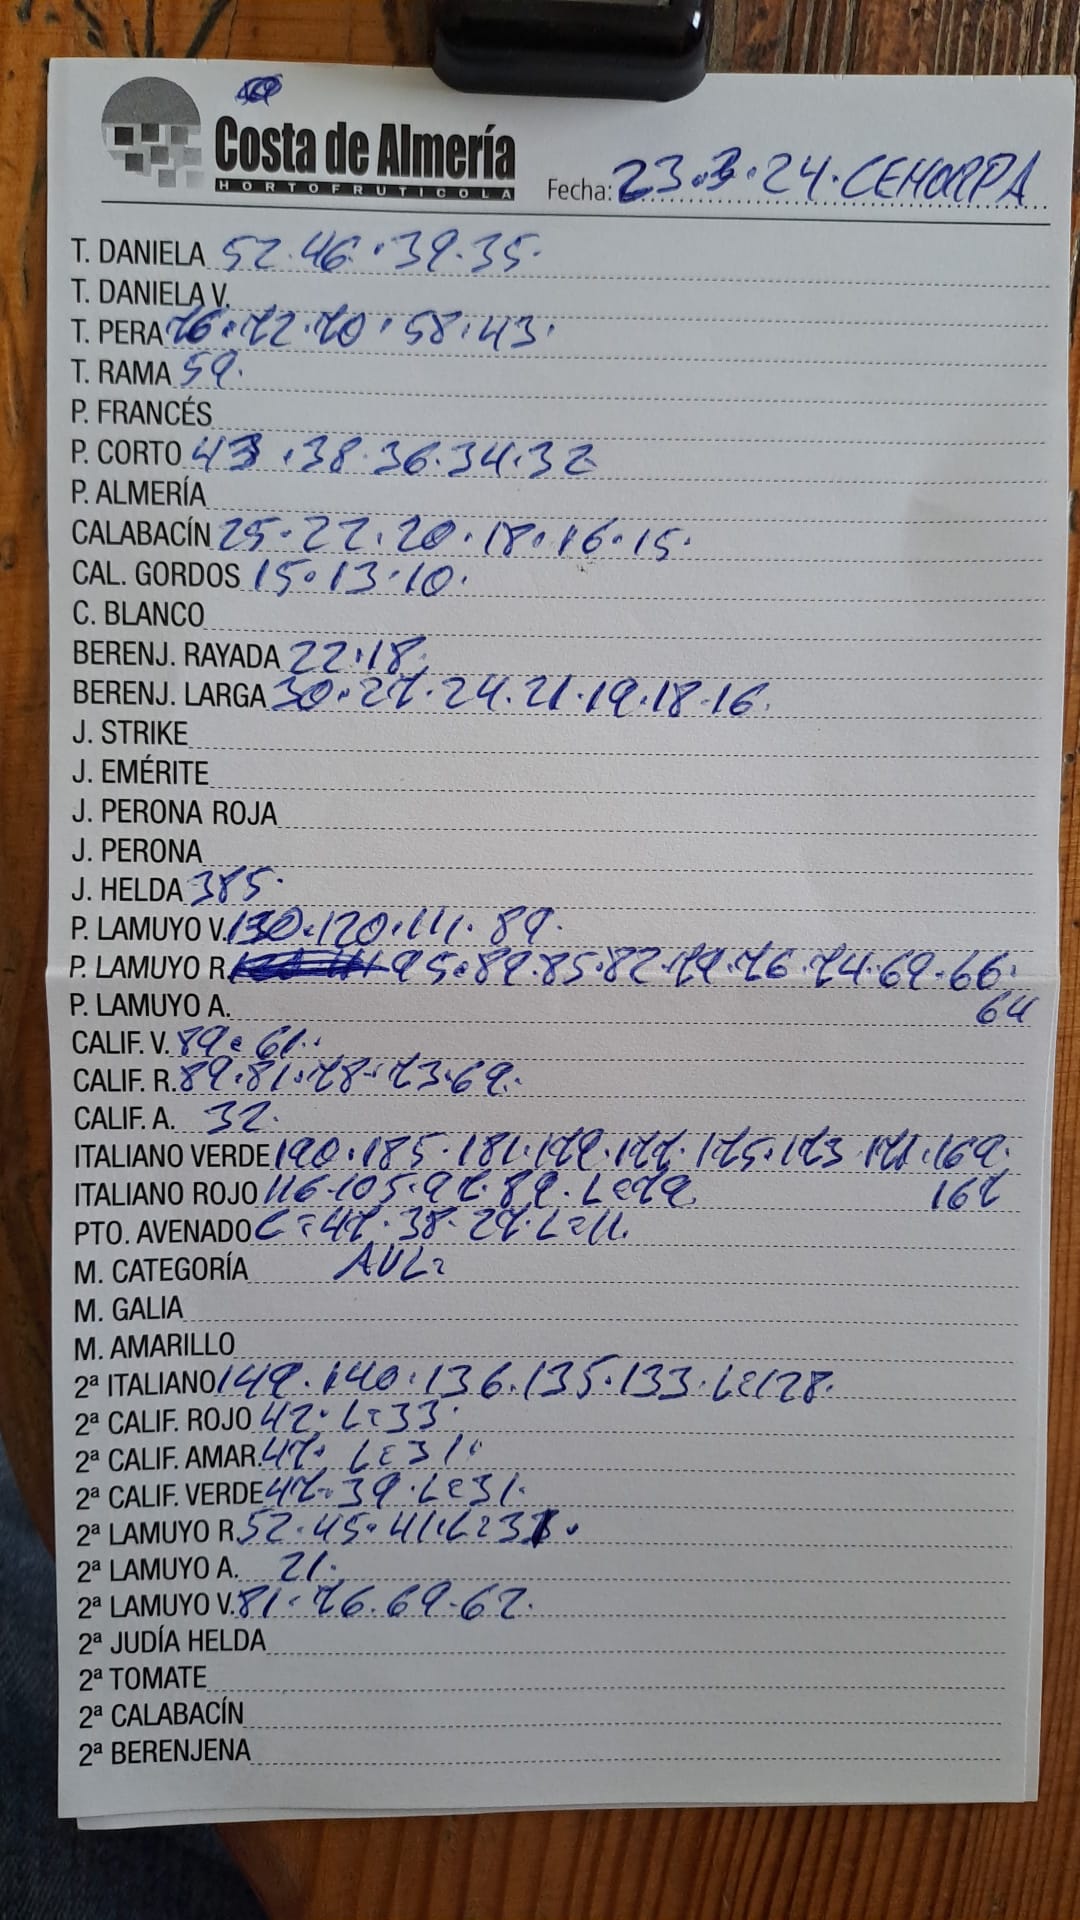 Costa de Almería
HORTOFRUTICOLA
Fecha: 23.3.24. CEHORPA
T. DANIELA 52.46.39.35.
T. DANIELA V.
T. PERA 76.72.70.58.43.
T. RAMA 59.
P. FRANCÉS
P. CORTO 43.38.36.34.32
P. ALMERÍA
CALABACÍN 25.22.20.18.16.15.
CAL. GORDOS 15.13.10.
C. BLANCO
BERENJ. RAYADA 22.18.
BERENJ. LARGA 30.27.24.21.19.18.16.
J. STRIKE
J. EMÉRITE
J. PERONA ROJA
J. PERONA
J. HELDA 385.
P. LAMUYO V. 130.120.111.89.
P. LAMUYO R. 95.89.85.82.79.76.74.69.66.
P. LAMUYO A. 64
CALIF. V. 89.61.
CALIF. R. 89.81.78.73.69.
CALIF. A. 32.
ITALIANO VERDE 190.185.181.179.177.175.173.171.169.
ITALIANO ROJO 116.105.97.89.L=79. 167
PTO. AVENADO C=47.38.27.L=11.
M. CATEGORÍA AVL=
M. GALIA
M. AMARILLO
2ª ITALIANO 149.140.136.135.133.L=128.
2ª CALIF. ROJO 42.L=33.
2ª CALIF. AMAR. 47. L=31.
2ª CALIF. VERDE 47.39.L=31.
2ª LAMUYO R. 52.45.41.L=31.
2ª LAMUYO A. 21.
2ª LAMUYO V. 81.76.69.62.
2ª JUDÍA HELDA
2ª TOMATE
2ª CALABACÍN
2ª BERENJENA